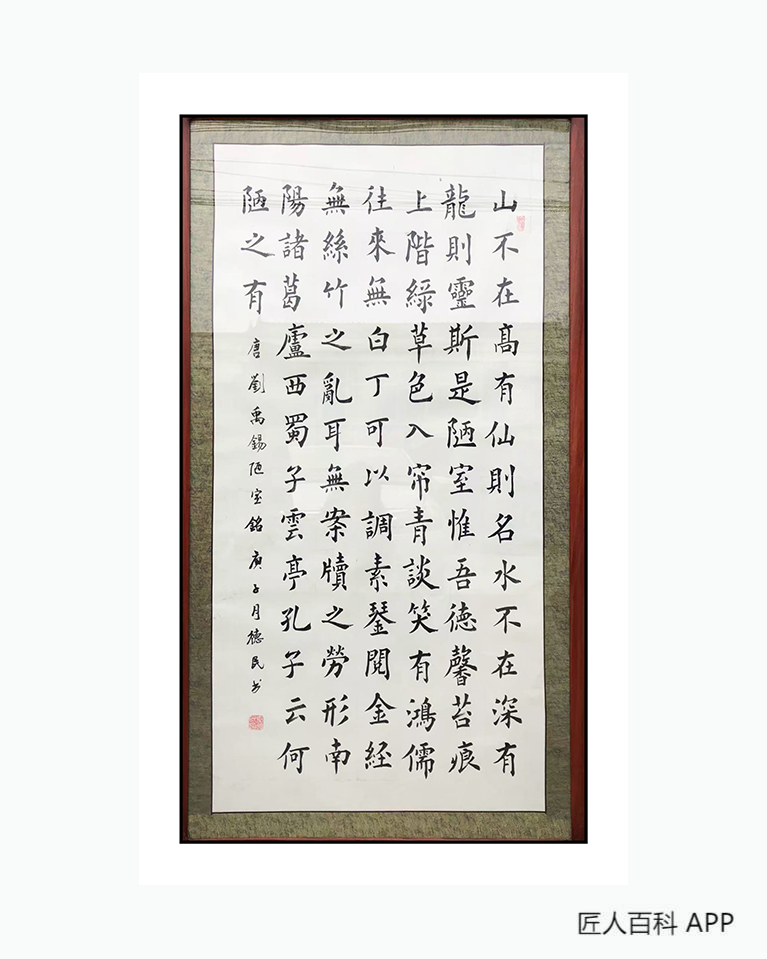 山不在髙有仙則名水不在深有
龍則靈斯是陋室惟吾德馨苔痕
上階緑草色入帘青談笑有鴻儒
往來無白丁可以調素琴閱金経
無絲竹之亂耳無案牘之勞形南
陽諸葛廬西蜀子雲亭孔子云何
陋之有 唐劉禹錫陋室銘 庚子月德民书
匠人百科 APP